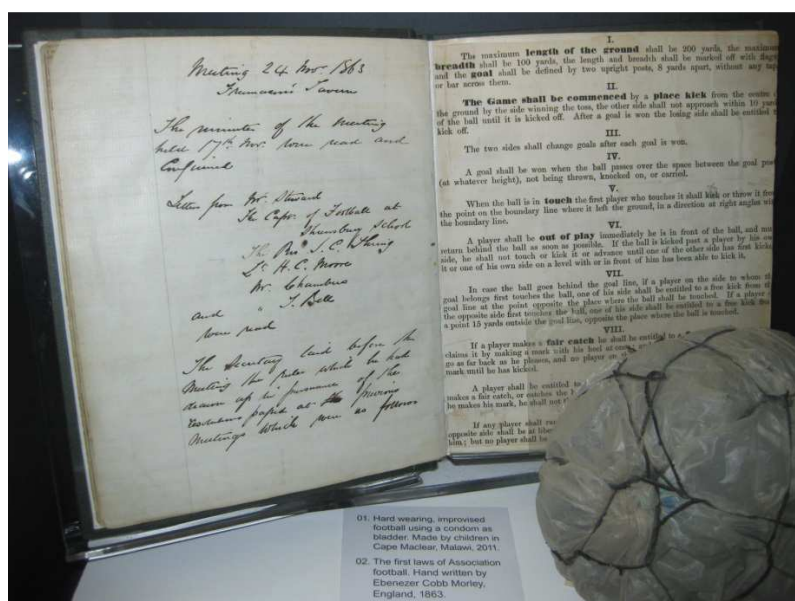 Meeting 24 Nov 1863
Freemason's Tavern
The minutes of the Meeting
held 17th Nov. were read and
Confirmed
Letter from Mr. Steward
The Capn. of Football at
Shrewsbury School
The Revd J. C. Thring
Lt H. C. Moore
Mr. Chambers
and " J. Bell
were read
The Secretary laid before the
Meeting the rules which he had
drawn up in pursuance of the
resolutions passed at the previous
Meetings which were as follows
I.
The maximum length of the ground shall be 200 yards, the maximum
breadth shall be 100 yards, the length and breadth shall be marked off with flags
and the goal shall be defined by two upright posts, 8 yards apart, without any tape
or bar across them.
II.
The Game shall be commenced by a place kick from the centre of
the ground by the side winning the toss, the other side shall not approach within 10 yards
of the ball until it is kicked off. After a goal is won the losing side shall be entitled to
kick off.
III.
The two sides shall change goals after each goal is won.
IV.
A goal shall be won when the ball passes over the space between the goal posts
(at whatever height), not being thrown, knocked on, or carried.
V.
When the ball is in touch the first player who touches it shall kick or throw it from
the point on the boundary line where it left the ground, in a direction at right angles with
the boundary line.
VI.
A player shall be out of play immediately he is in front of the ball, and must
return behind the ball as soon as possible. If the ball is kicked past a player by his own
side, he shall not touch or kick it or advance until one of the other side has first kicked
it or one of his own side on a level with or in front of him has been able to kick it.
VII.
In case the ball goes behind the goal line, if a player on the side to whom the
goal belongs first touches the ball, one of his side shall be entitled to a free kick from the
goal line at the point opposite the place where the ball shall be touched. If a player of
the opposite side first touches the ball, one of his side shall be entitled to a free kick from
a point 15 yards outside the goal line, opposite the place where the ball is touched.
VIII.
If a player makes a fair catch he shall be entitled to a
claims it by making a mark with his heel at once; and
go as far back as he pleases, and no player on
mark until he has kicked.
A player shall be entitled to
makes a fair catch, or catches the
he makes his mark, he shall not
If any player shall
opposite side shall be at
him; but no player shall be
01. Hard wearing, improvised
football using a condom as
bladder. Made by children in
Cape Maclear, Malawi, 2011.
02. The first laws of Association
football. Hand written by
Ebenezer Cobb Morley,
England, 1863.